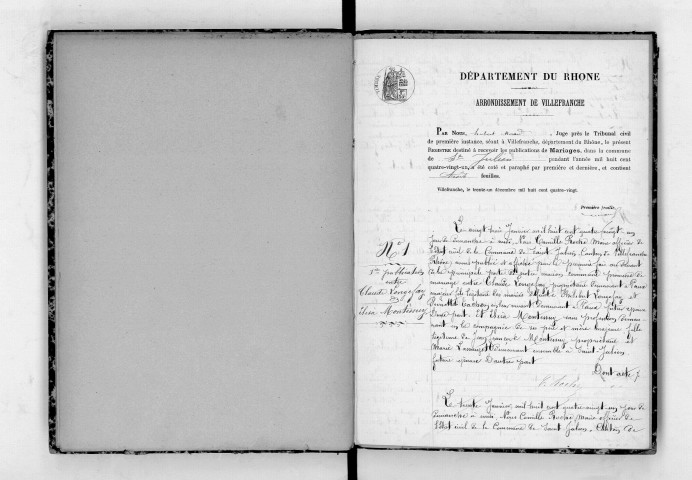 DÉPARTEMENT DU RHONE
ARRONDISSEMENT DE VILLEFRANCHE
PAR NOUS, Juge près le Tribunal civil
de première instance, séant à Villefranche, département du Rhône, le présent
REGISTRE destiné à recevoir les publications de Mariages, dans la commune
de St Julien pendant l'année mil huit cent
quatre-vingt-un, a été coté et paraphé par première et dernière, et contient
feuilles.
Villefranche, le trente-un décembre mil huit cent quatre-vingt.
Première feuille.
No 1
1re publication
entre
Claude Longefay
et
Montisuy
Le vingt trois Janvier mil huit cent quatre vingt un
jour de Dimanche à midi, Nous Camille Maire officier de
l'Etat civil de la Commune de Saint Julien, Canton de Villefranche
Rhône, avons publié et affiché pour la première fois au devant
de la principale porte de notre maison commune promesse de
mariage entre Claude Longefay propriétaire Demeurant à
majeur fils légitime des mariés Longefay et
Demeurant à futur époux
D'une part. Et Montisuy sans profession Demeurant
en la compagnie de ses père et mère majeure fille
légitime de Montisuy propriétaire et
Marie Demeurant ensemble à Saint Julien
future épouse D'autre part
Dont acte
Le trente Janvier mil huit cent quatre-vingt-un jour de
Dimanche à midi, Nous Camille Maire officier de
l'Etat civil de la Commune de Saint Julien, Canton de